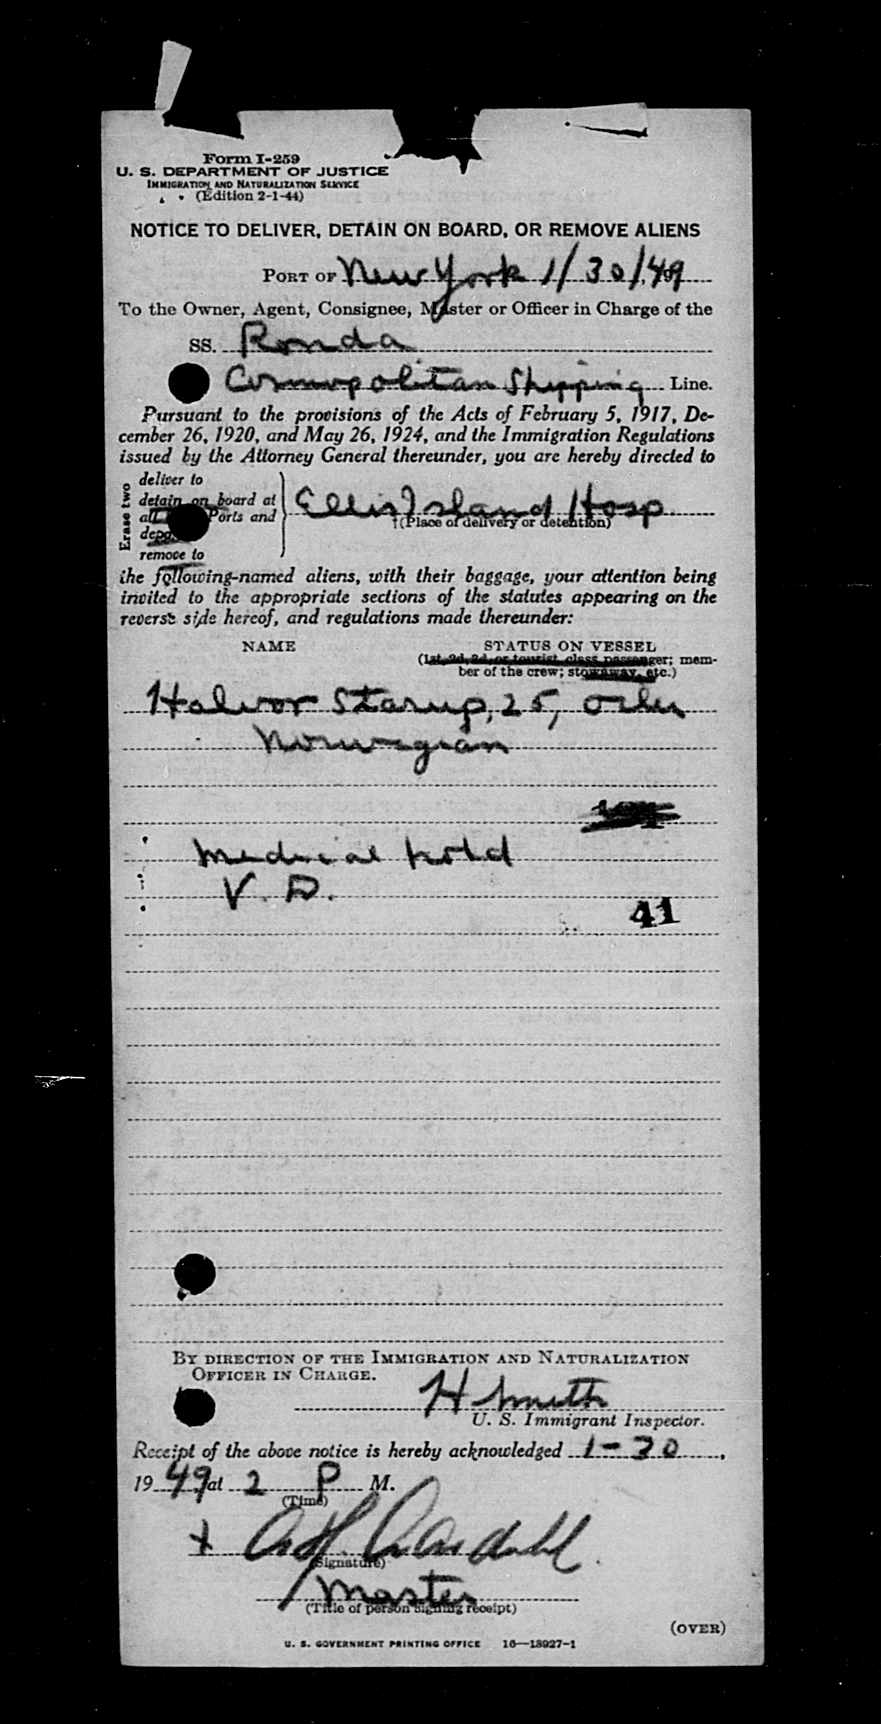 Form I-259
U. S. DEPARTMENT OF JUSTICE
IMMIGRATION AND NATURALIZATION SERVICE
(Edition 2-1-44)
NOTICE TO DELIVER, DETAIN ON BOARD, OR REMOVE ALIENS
PORT OF New York 1/30/49
To the Owner, Agent, Consignee, Master or Officer in Charge of the
SS. Ronda
Cosmopolitan Shipping Line.
Pursuant to the provisions of the Acts of February 5, 1917, De-
cember 26, 1920, and May 26, 1924, and the Immigration Regulations
issued by the Attorney General thereunder, you are hereby directed to
Erase two
deliver to
detain on board at
all Ports and
remove to
Ellis Island Hosp.
†(Place of delivery or detention)
the following-named aliens, with their baggage, your attention being
invited to the appropriate sections of the statutes appearing on the
reverse side hereof, and regulations made thereunder:
NAME STATUS ON VESSEL
(1st, 2d, 3d, or tourist class passenger; mem-
ber of the crew; stowaway, etc.)
Halvor Starup, 25, Oiler
Norwegian
Medical hold
V. D.
41
BY DIRECTION OF THE IMMIGRATION AND NATURALIZATION
OFFICER IN CHARGE.
H Smith
U. S. Immigrant Inspector.
Receipt of the above notice is hereby acknowledged 1-30,
1949, at 2 P M.
(Time)
x
(Signature)
Master
(Title of person signing receipt)
(OVER)
U. S. GOVERNMENT PRINTING OFFICE 16—18927-1